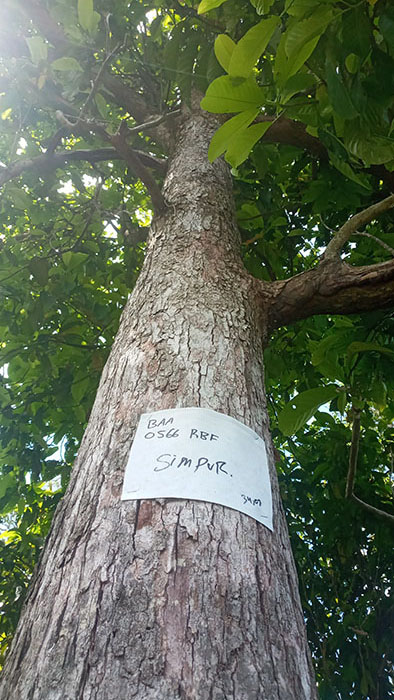 BAA
0566 RBF
SimPUR.
34M